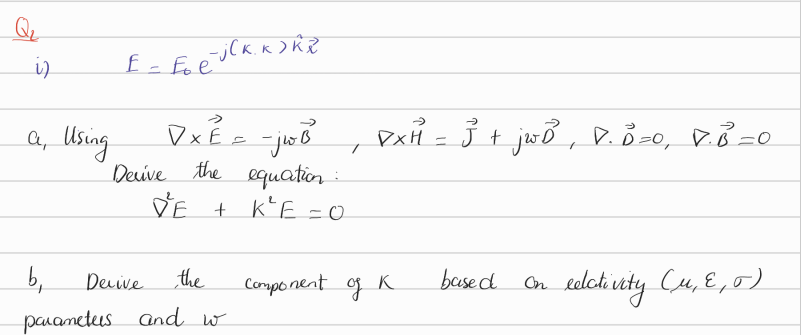 Q1
i) E = E₀ e^{-j(K.K) K̂ r⃗}
a, Using ∇ × E⃗ = -jωB⃗ , ∇×H⃗ = J⃗ + jωD⃗ , ∇. D⃗ =0, ∇.B⃗ =0
Derive the equation :
∇²E + K²E = 0
b, Derive the component of K based on relativity (μ, ε, σ)
parameters and ω